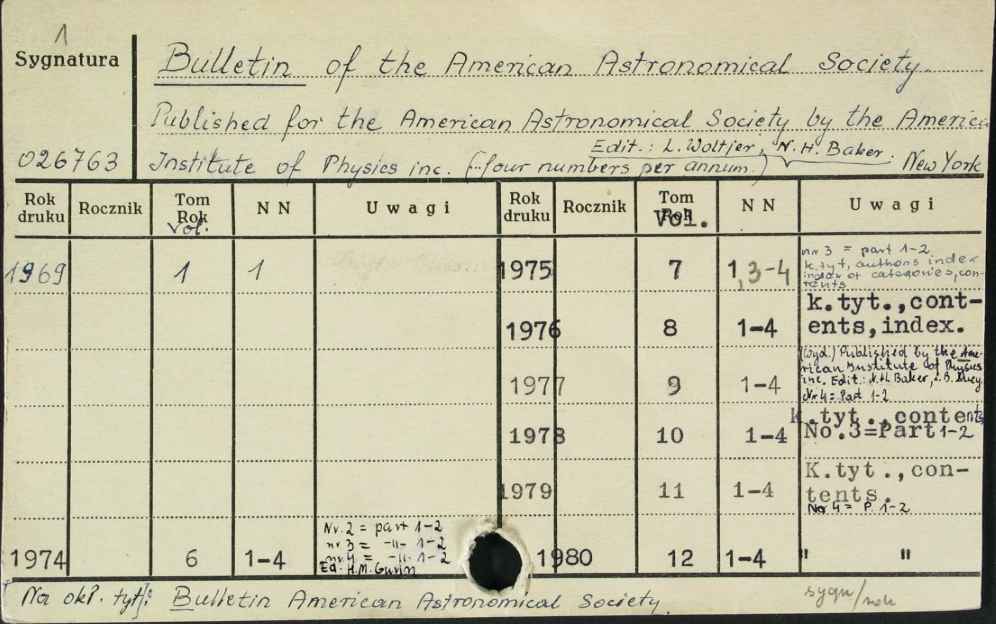 1
Sygnatura
Bulletin of the American Astronomical Society
Published for the American Astronomical Society by the America
Edit.: L. Woltjer, N. H. Baker.
026763 Institute of Physics inc. (four numbers per annum.) New York
Rok druku Rocznik Tom Rok Vol. NN Uwagi Rok druku Rocznik Tom Rok Vol. NN Uwagi
1969 1 1 1975 7 1,3-4 nr 3 = part 1-2
k.tyt, authors index
index of categories, con-
tents
1976 8 1-4 k.tyt.,cont-
ents,index.
1977 9 1-4 (Wyd.) Published by the Ame-
rican Institute of Physics
inc. Edit.: N.H. Baker, L.B.
Nr 4 = Part 1-2
1978 10 1-4 k.tyt.,contents
No.3=Part 1-2
1979 11 1-4 K.tyt.,con-
tents.
No 4 = P. 1-2
1974 6 1-4 Nr. 2 = part 1-2
nr 3 = -"- 1-2
nr 4 = -"- 1-2
Ed. H.M. Gurin
1980 12 1-4 " "
Na okł. tyt: Bulletin American Astronomical Society
sygn/nok